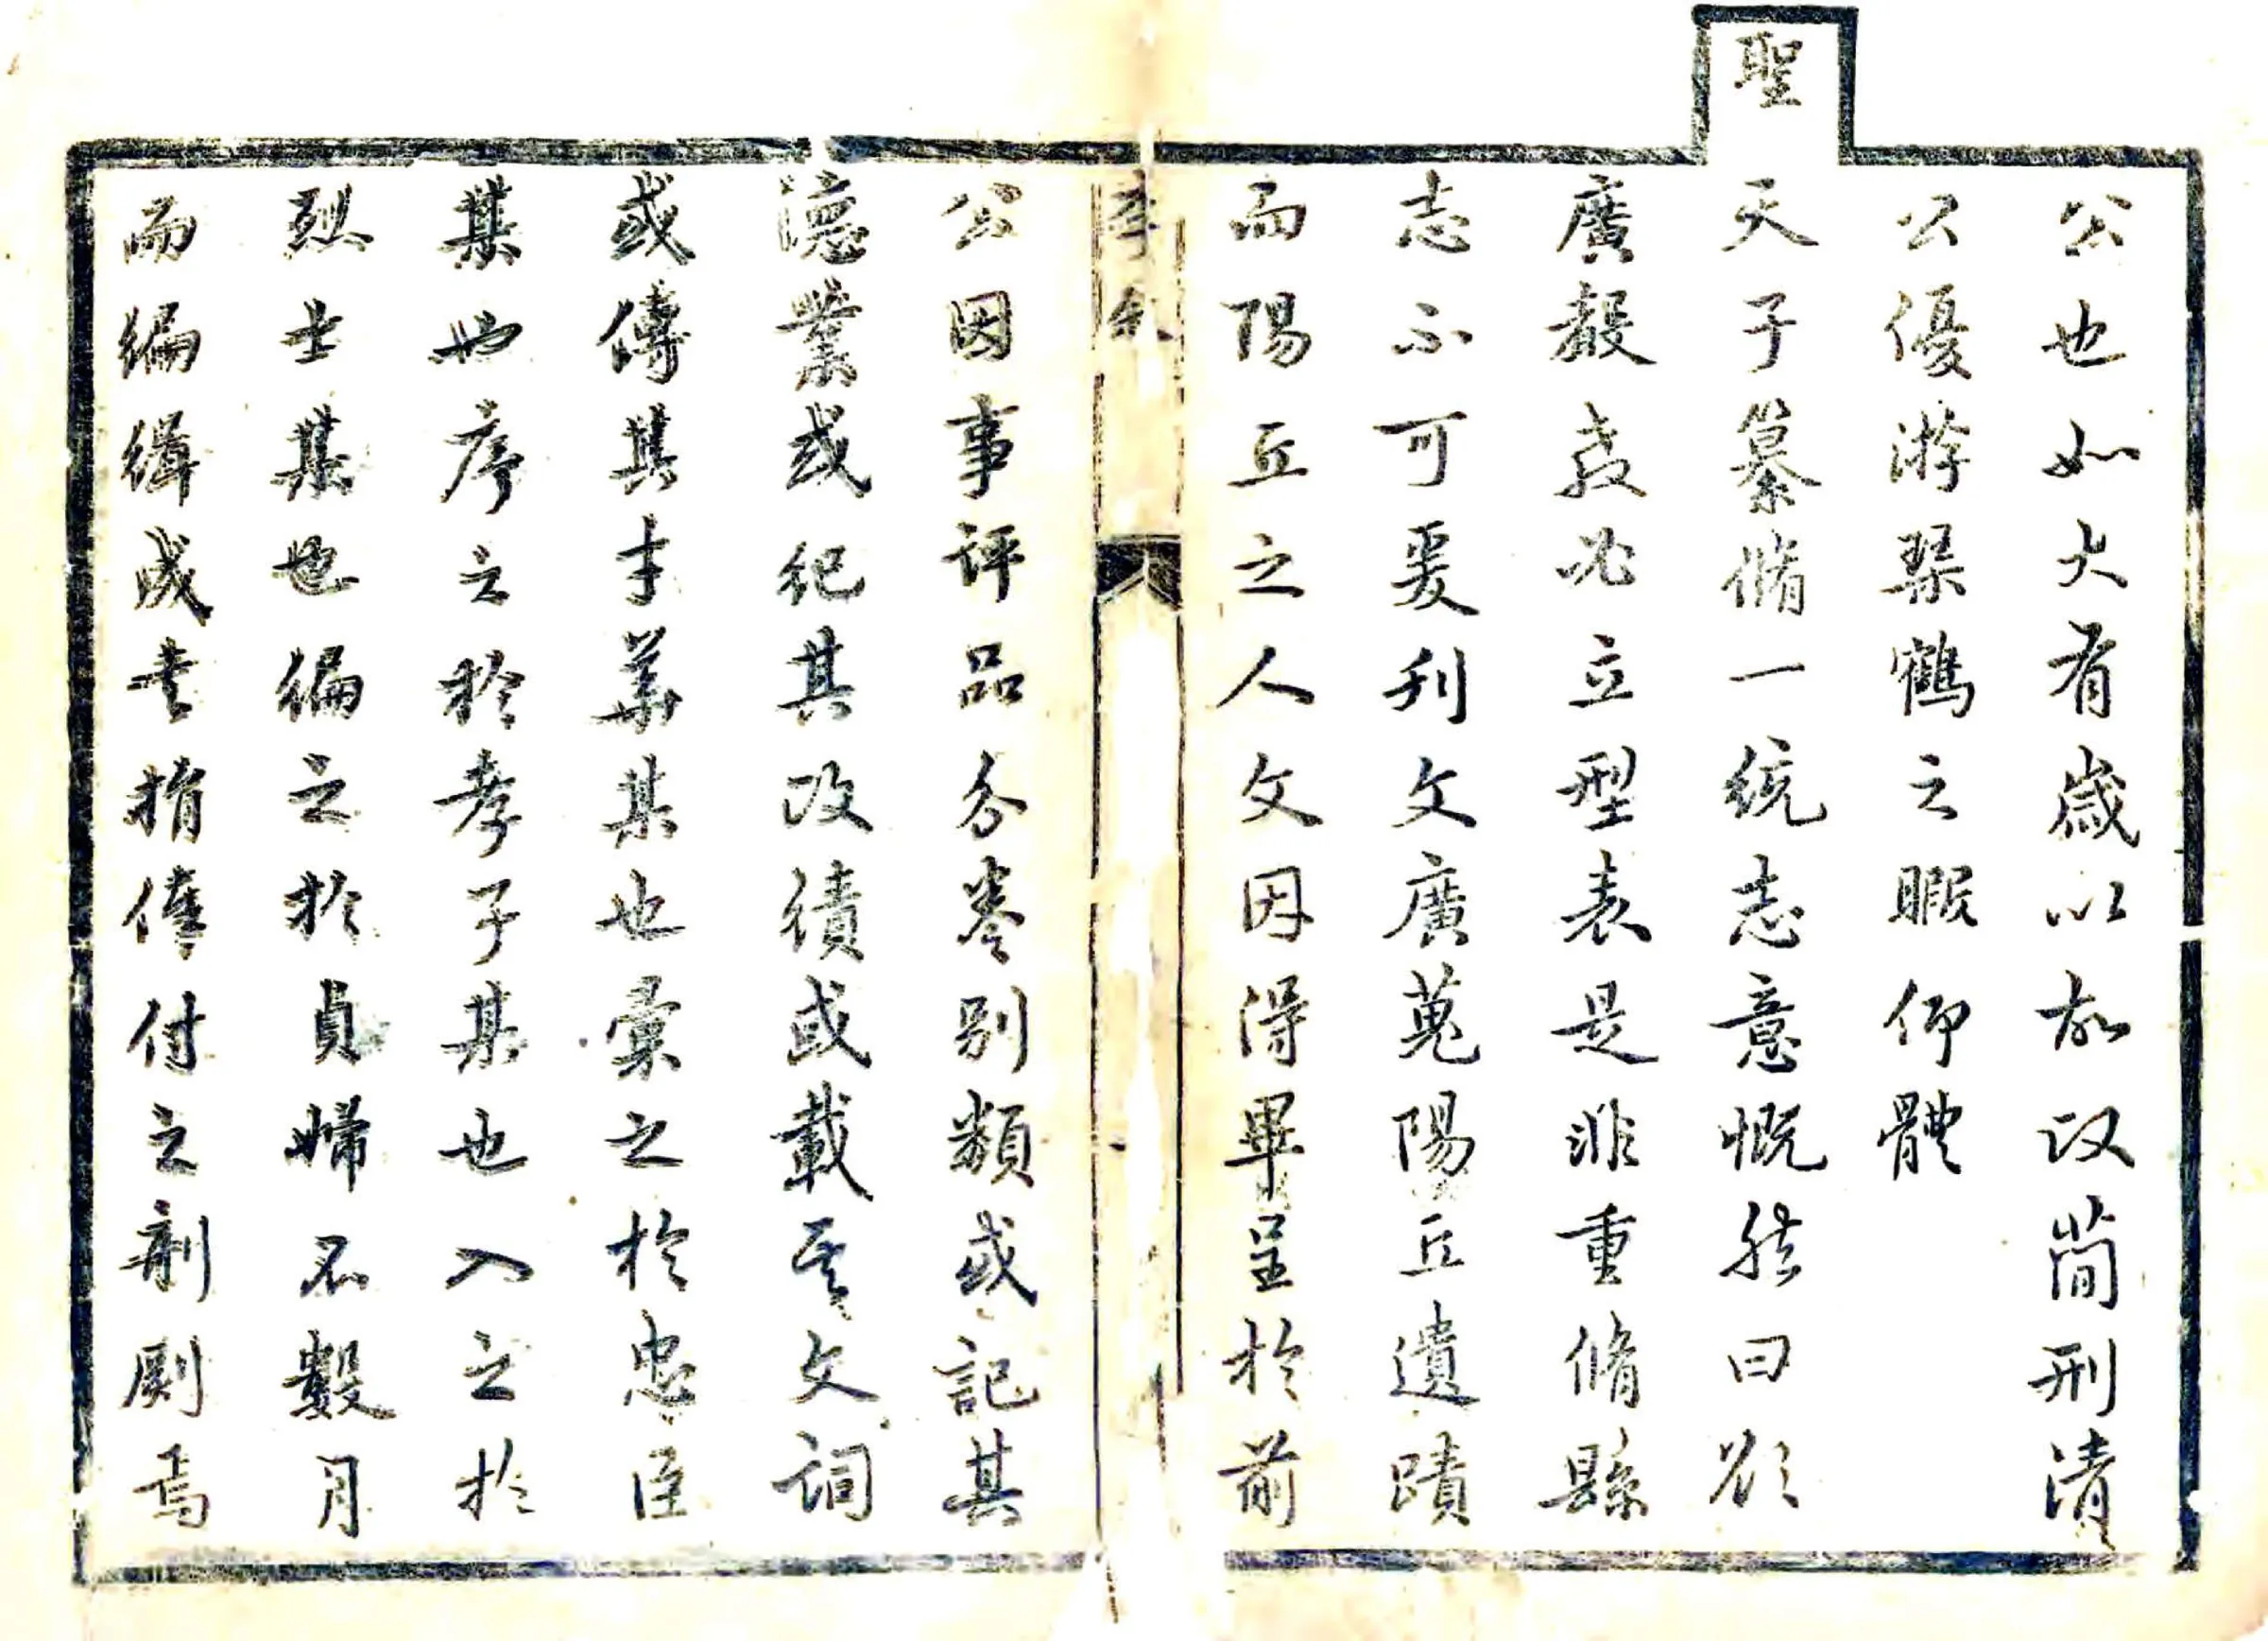 公也如大有歲以故政簡刑清
公優游琴鶴之暇仰體
聖天子纂脩一統志意慨然曰欲
廣聲教必立型表是非重脩縣
志不可爰刋文廣蒐陽丘遺蹟
而陽丘之人文因得畢呈於前
李敘
公因事評品分卷別類或記其
德業或紀其政績或載其文詞
或傳其才華某某也彙之於忠臣
某也序之於孝子某也入之於
烈士某也編之於貞婦不數月
而編緝成書捐俸付之剞劂焉